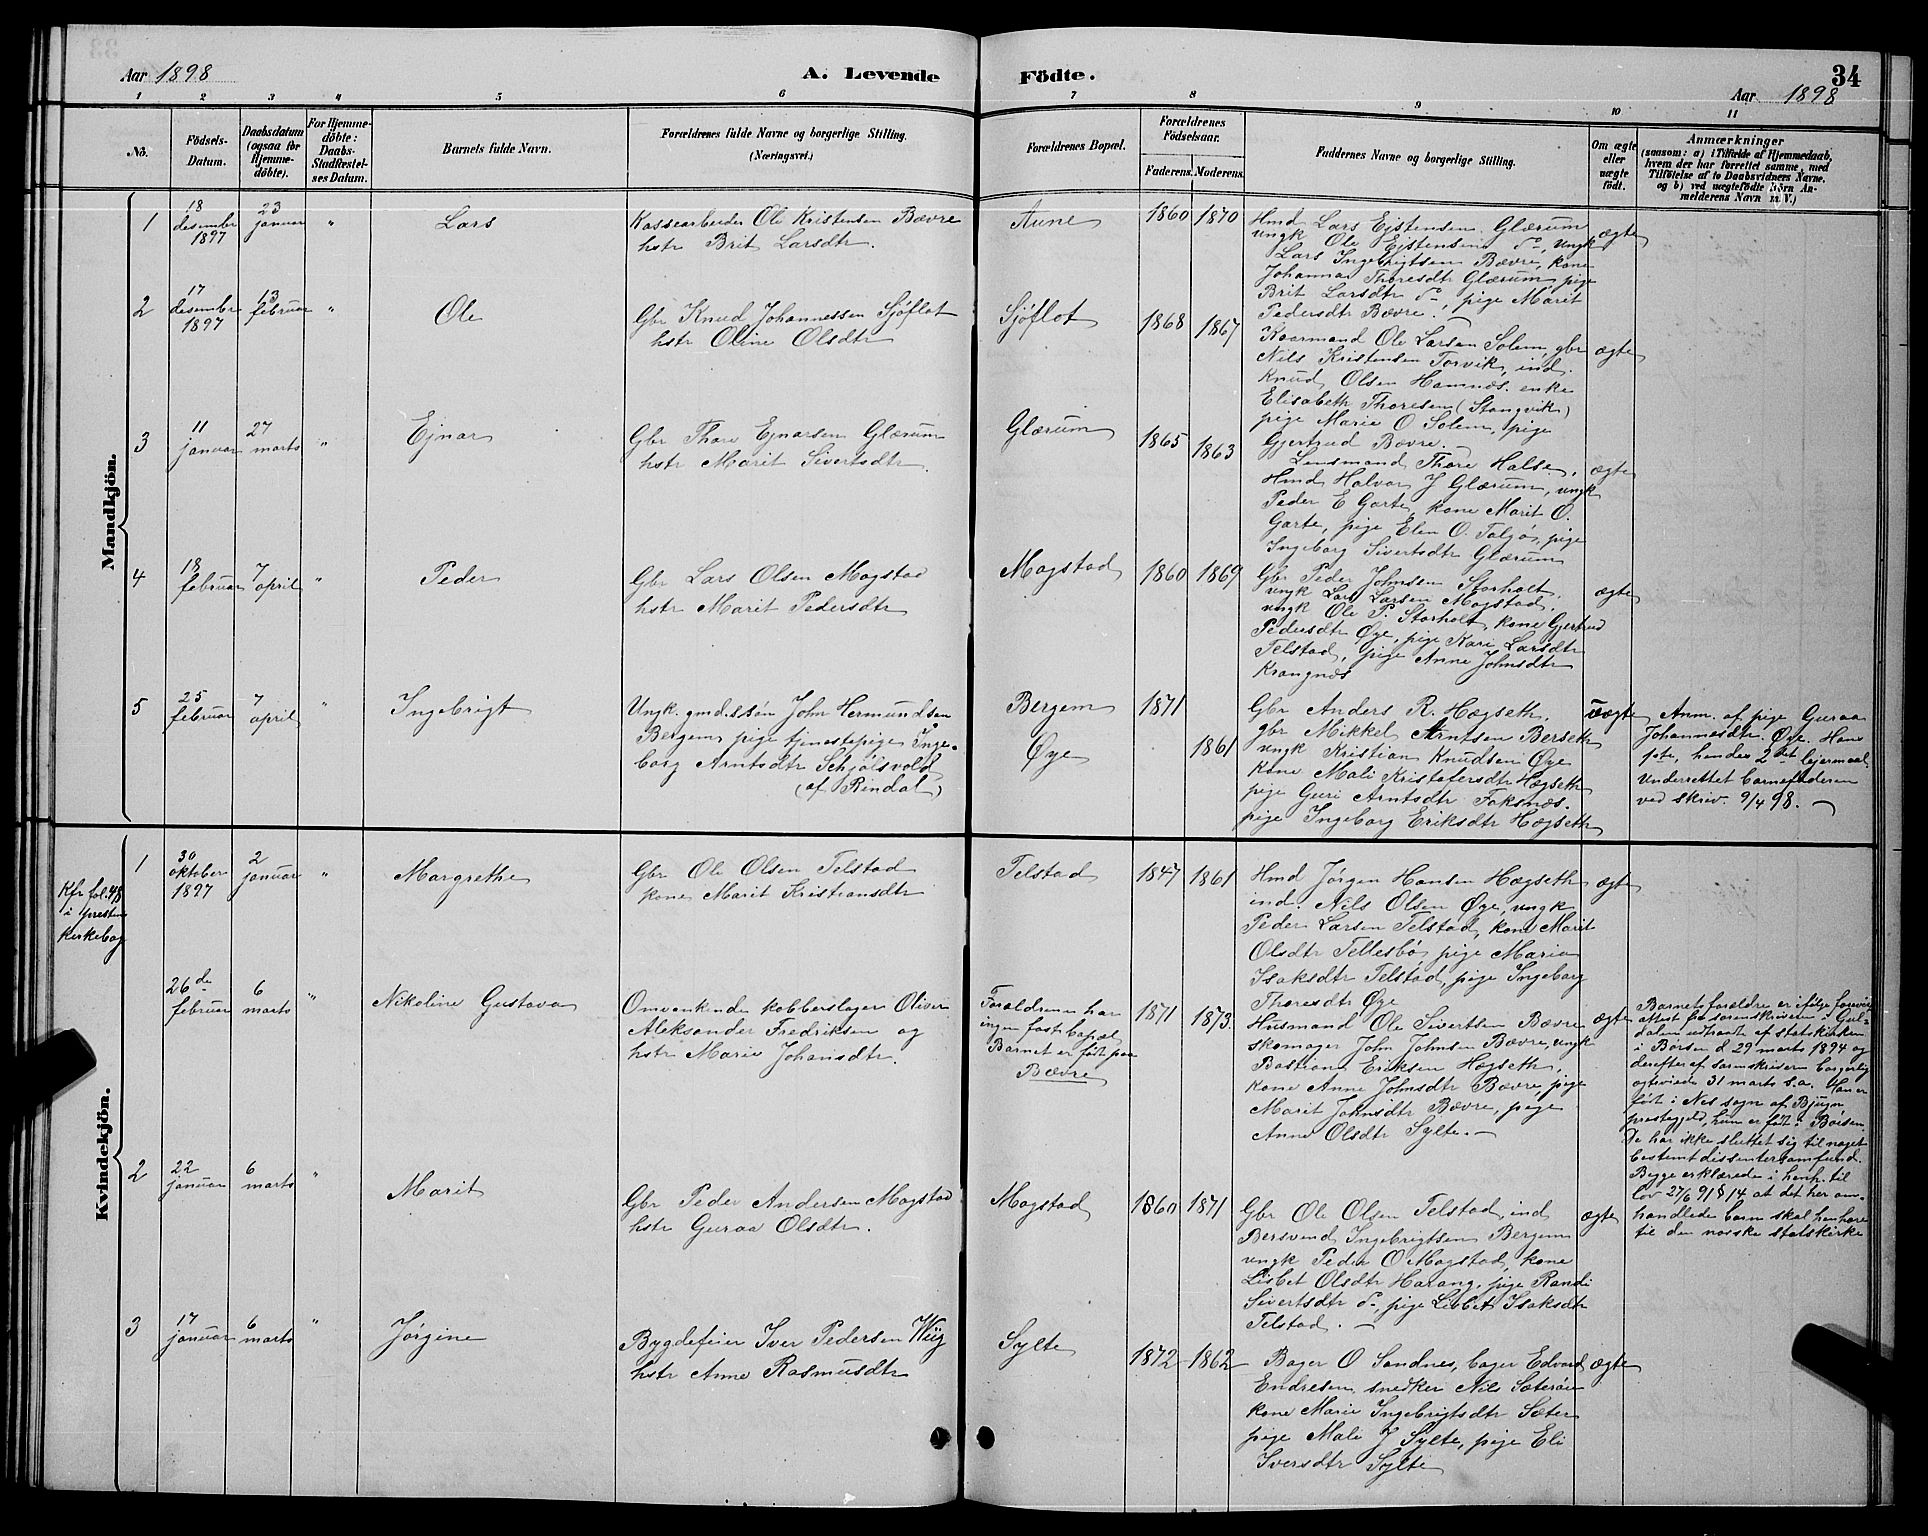 Aar 1898
A. Levende
Födte.
34
Aar 1898
1 2 3 4 5 6 7 8 9 10 11
No.
Födsels-
Datum.
Daabsdatum
(ogsaa for
Hjemme-
döbte).
For Hjemme-
döbte:
Daabs-
Stadfæstel-
ses Datum.
Barnets fulde Navn.
Forældrenes fulde Navne og borgerlige Stilling.
(Næringsvei.)
Forældrenes Bopæl.
Forældrenes
Födselsaar.
Faderens. Moderens.
Faddernes Navne og borgerlige Stilling.
Om ægte
eller
uægte
födt.
Anmærkninger
(saasom: a) i Tilfælde af Hjemmedaab,
hvem der har forrettet samme, med
Tilföielse af to Daabsvidners Navne,
og b) ved uægtefödte Börn An-
melderens Navn m. V.)
Mandkjön.
1
18
desember
1897
23
januar
"
Lars
Kassearbeider Ole Kristensen Bævre
hstr Brit Larsdtr.
Aune
1860 1870
Hmd Lars Ejstensen Glærum
ungk Ole Ejstensen do, ungk
Lars Ingebrigtsen Bævre, kone
Johanna Thoresdtr Glærum, pige
Brit Larsdtr do, pige Marit
Pedersdtr Bævre.
ægte
2
17
desember
1897
13
februar
"
Ole
Gbr Knud Johannessen Sjøflot
hstr Oline Olsdtr
Sjøflot
1868 1867
Kaarmand Ole Larsen Solem, gbr
Nils Kristensen Torvik, ind.
Knud Olsen Hamnes. enke
Elisabeth Thoresen (Stangvik)
pige Marie O Solem, pige
Gjertrud Bævre.
ægte
3
11
januar
27
marts
"
Ejnar
Gbr Thore Ejnarsen Glærum
hstr Marit Sivertsdtr.
Glærum
1865 1863
Lensmand Thore Halse,
Hmd Halvor J Glærum, ungk
Peder E Garte, kone Marit O.
Garte, pige Elen O. Talgø, pige
Ingeborg Sivertsdtr Glærum
ægte
4
18
februar
7
april
"
Peder
Gbr Lars Olsen Mogstad
hstr Marit Pedersdtr
Mogstad
1860 1869
Gbr Peder Johnsen Storholt,
ungk Lars Larsen Mogstad,
ungk Ole P. Storholt, kone Gjertrud
Pedersdtr Øye, pige Kari Larsdtr
Telstad, pige Anne Johnsdtr
Krangnes
ægte
5
25
februar
7
april
"
Ingebrigt
Ungk. gmd.ssøn John Hermundsen
Bergem, pige tjenestepige Inge-
borg Arntsdtr Schjølsvold
(af Rindal)
Bergem
Øye
1871
1861
Gbr Anders R. Hægseth,
gbr Mikkel Arntsen Berseth
ungk Kristian Knudsen Øye
kone Mali Kristofersdtr Hægseth
pige Guri Arntsdtr Foksnes.
pige Ingeborg Eriksdtr Hægseth
uægte
Anm. af pige Guraa
Johannesdtr. Øye. Hans
1ste, hendes 2det lejermaal.
Underrettet barnefaderen
ved skriv. 9/4 98.
Kfr fol. 48
i prestens
kirkebog
Kvindekjön.
1
30
oktober
1897
2
januar
"
Margrethe
Gbr Ole Olsen Telstad
kone Marit Kristiansdtr
Telstad
1847 1861
Hmd Jørgen Hansen Hægseth
ind. Nils Olsen Øye, ungk
Peder Larsen Telstad, kone Marit
Olsdtr Tellesbø, pige Maria
Isaksdtr Telstad, pige Ingeborg
Thoresdtr Øye
ægte
26de
februar
6
marts
"
Nikoline Gustava
Omvankende kobberslager Oliver
Aleksander Fredriksen og
hstr Marie Johansdtr.
Forældrene har
ingen fast bopæl
Barnet er født paa
Bævre
1871 1873.
Husmand Ole Sivertsen Bævre
skomager John Johnsen Bævre, ungk
Bastian Eriksen Hægseth,
kone Anne Johnsdtr Bævre, pige
Marit Johnsdtr Bævre, pige
Anne Olsdtr Sylte.
ægte
Barnets forældre er ifølge forevist
attest fra sorenskriveren i Gul-
dalen udtraadt af statskirken
i Børsen d 29 marts 1894 og
derefter af sorenskriveren borgerlig
ægteviede 31 marts s.a. Han er
født i Nes sogn af Bjugn
prestegjeld, hun er født i Børsen.
De har ikke sluttet sig til noget
bestemt dissentersamfund.
Begge erklærede i henh. til
lov 27/6 91 § 14 at det her om-
handlede barn skal henhøre
til den norske statskirke
2
22
januar
6
marts
"
Marit
Gbr Peder Andersen Mogstad
hstr Guraa Olsdtr.
Mogstad
1860 1871
Gbr Ole Olsen Telstad, ind
Bersvend Ingebrigtsen Bergem
ungk Peder O Mogstad, kone
Lisbet Olsdtr Harang, pige Randi
Sivertsdtr do, pige Lisbet Isaksdtr
Telstad.
ægte
3
17
januar
6
marts
"
Jørgine
Bygdefeier Iver Pedersen Wiig
hstr Anne Rasmusdtr
Sylte
1872 1862
Bager O Sandnes, bager Edvard
Endresen, snedker Nils Sæterøien
kone Marie Ingebrigtsdtr Sæter
pige Mali J Sylte, pige Eli
Iversdtr Sylte
ægte